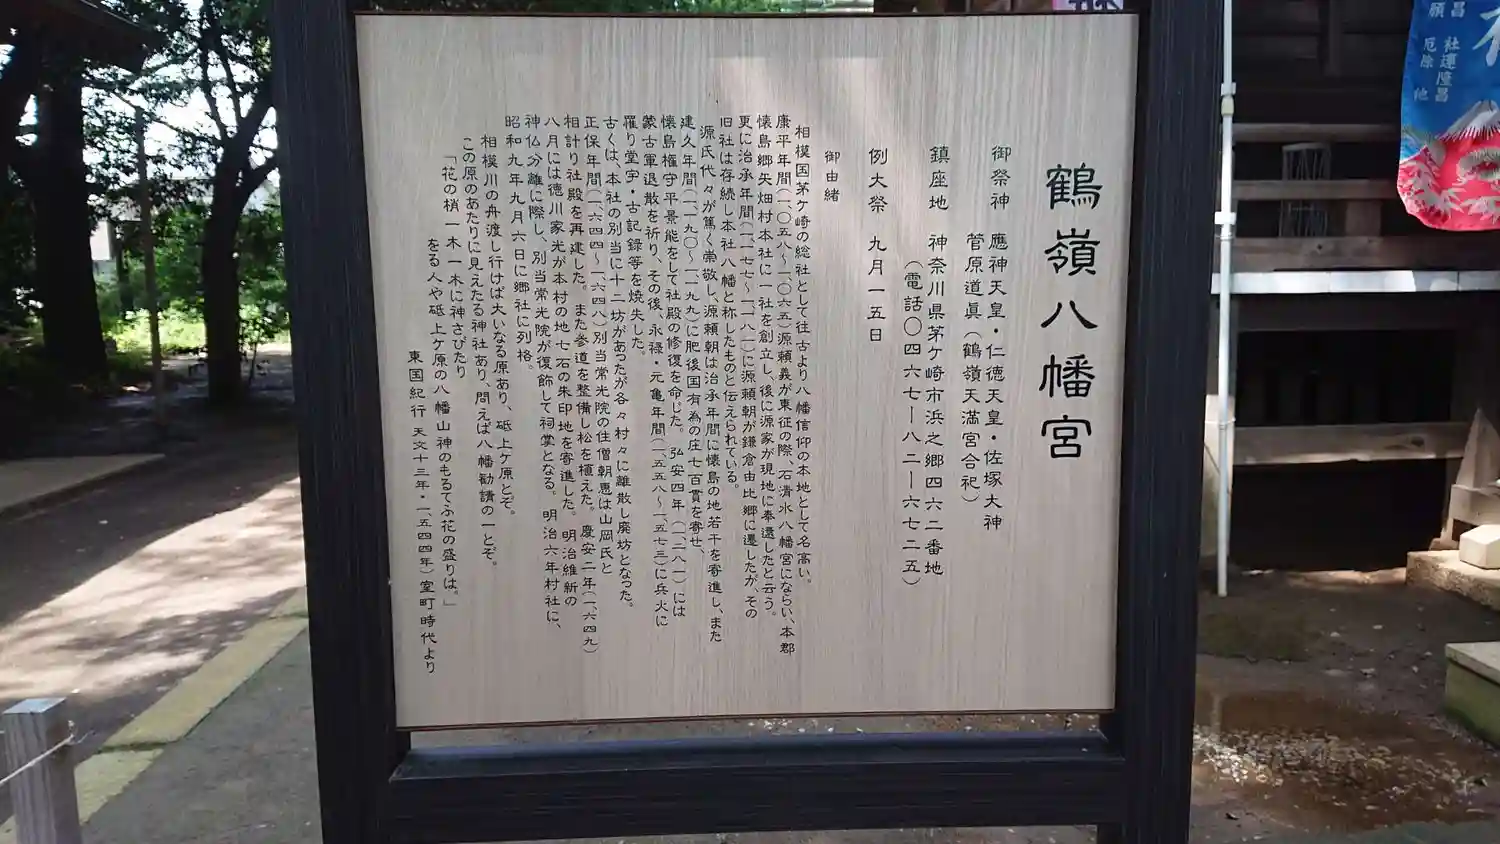 鶴嶺八幡宮
御祭神　應神天皇・仁徳天皇・佐塚大神
菅原道眞（鶴嶺天満宮合祀）
鎮座地　神奈川県茅ケ崎市浜之郷四六二番地
（電話〇四六七ー八二ー六七二五）
例大祭　九月一五日
御由緒
相模国茅ケ崎の総社として往古より八幡信仰の本地として名高い。
康平年間（一、〇五八〜一、〇六五）源頼義が東征の際、石清水八幡宮にならい、本郡
懐島郷矢畑村本社に一社を創立し、後に源家が現地に奉遷したと云う。
更に治承年間（一、一七七〜一、一八一）に源頼朝が鎌倉由比郷に遷したが、その
旧社は存続し本社八幡と称したものと伝えられている。
源氏代々が篤く崇敬し、源頼朝は治承年間に懐島の地若干を寄進し、また
建久年間（一、一九〇〜一、一九九）に肥後国有為の庄七百貫を寄せ、
懐島権守平景能をして社殿の修復を命じた。弘安四年（一、二八一）には
蒙古軍退散を祈り、その後、永禄・元亀年間（一、五五八〜一、五七三）に兵火に
罹り堂宇・古記録等を焼失した。
古くは、本社の別当に十二坊があったが各々村々に離散し廃坊となった。
正保年間（一、六四四〜一、六四八）別当常光院の住僧朝恵は山岡氏と
相計り社殿を再建した。また参道を整備し松を植えた。慶安二年（一、六四九）
八月には徳川家光が本村の地七石の朱印地を寄進した。明治維新の
神仏分離に際し、別当常光院が復飾して祠掌となる。明治六年村社に、
昭和九年九月六日に郷社に列格。
相模川の舟渡し行けば大いなる原あり、砥上ケ原とぞ。
この原のあたりに見えたる神社あり、問えば八幡勧請の一とぞ。
「花の梢一木一木に神さびたり
をる人や砥上ケ原の八幡山神のもるてふ花の盛りは。」
東国紀行　天文十三年・一、五四四年）室町時代より
昌
願
社運隆昌
厄除